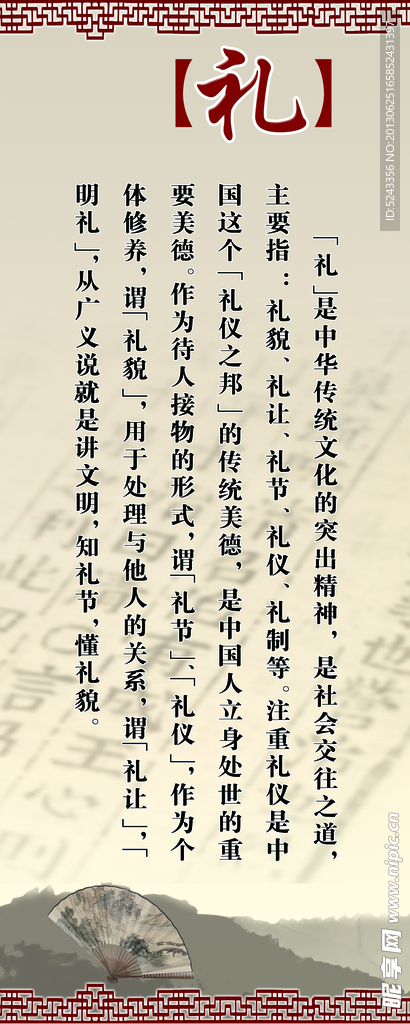 【礼】
「礼」是中华传统文化的突出精神，是社会交往之道，
主要指：礼貌、礼让、礼节、礼仪、礼制等。注重礼仪是中
国这个「礼仪之邦」的传统美德，是中国人立身处世的重
要美德。作为待人接物的形式，谓「礼节」、「礼仪」，作为个
体修养，谓「礼貌」，用于处理与他人的关系，谓「礼让」，「
明礼」，从广义说就是讲文明，知礼节，懂礼貌。
昵享网 www.nipic.cn